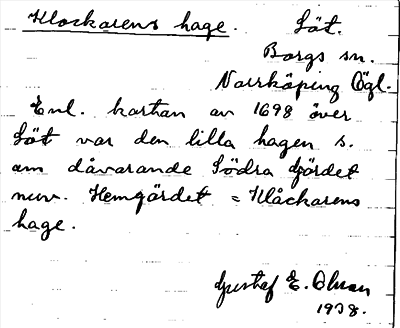 Klockarens hage. Löt.
Borgs sn.
Norrköping Ögl.
Enl. kartan av 1698 över
Löt var den lilla hagen s.
om dåvarande Södra gärdet
nuv. Hemgärdet = Klåckarens
hage.
Gustaf E. Olsson
1938.